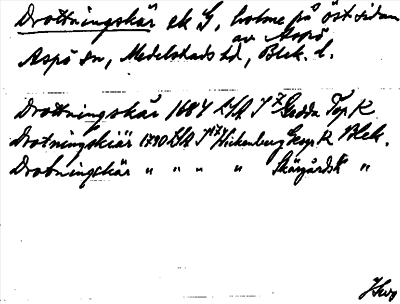 Drottningskär ek G, holme på östsidan
av Aspö
Aspö sn, Medelstads hd, Blek. l.
Drottningskär 1684 LA I 7 Gedda Top. K
Drotningskiär 1790 LA I 17 Wickenberg Geogr. K Blek.
Drobningskär " " " " Skärgårdsk "